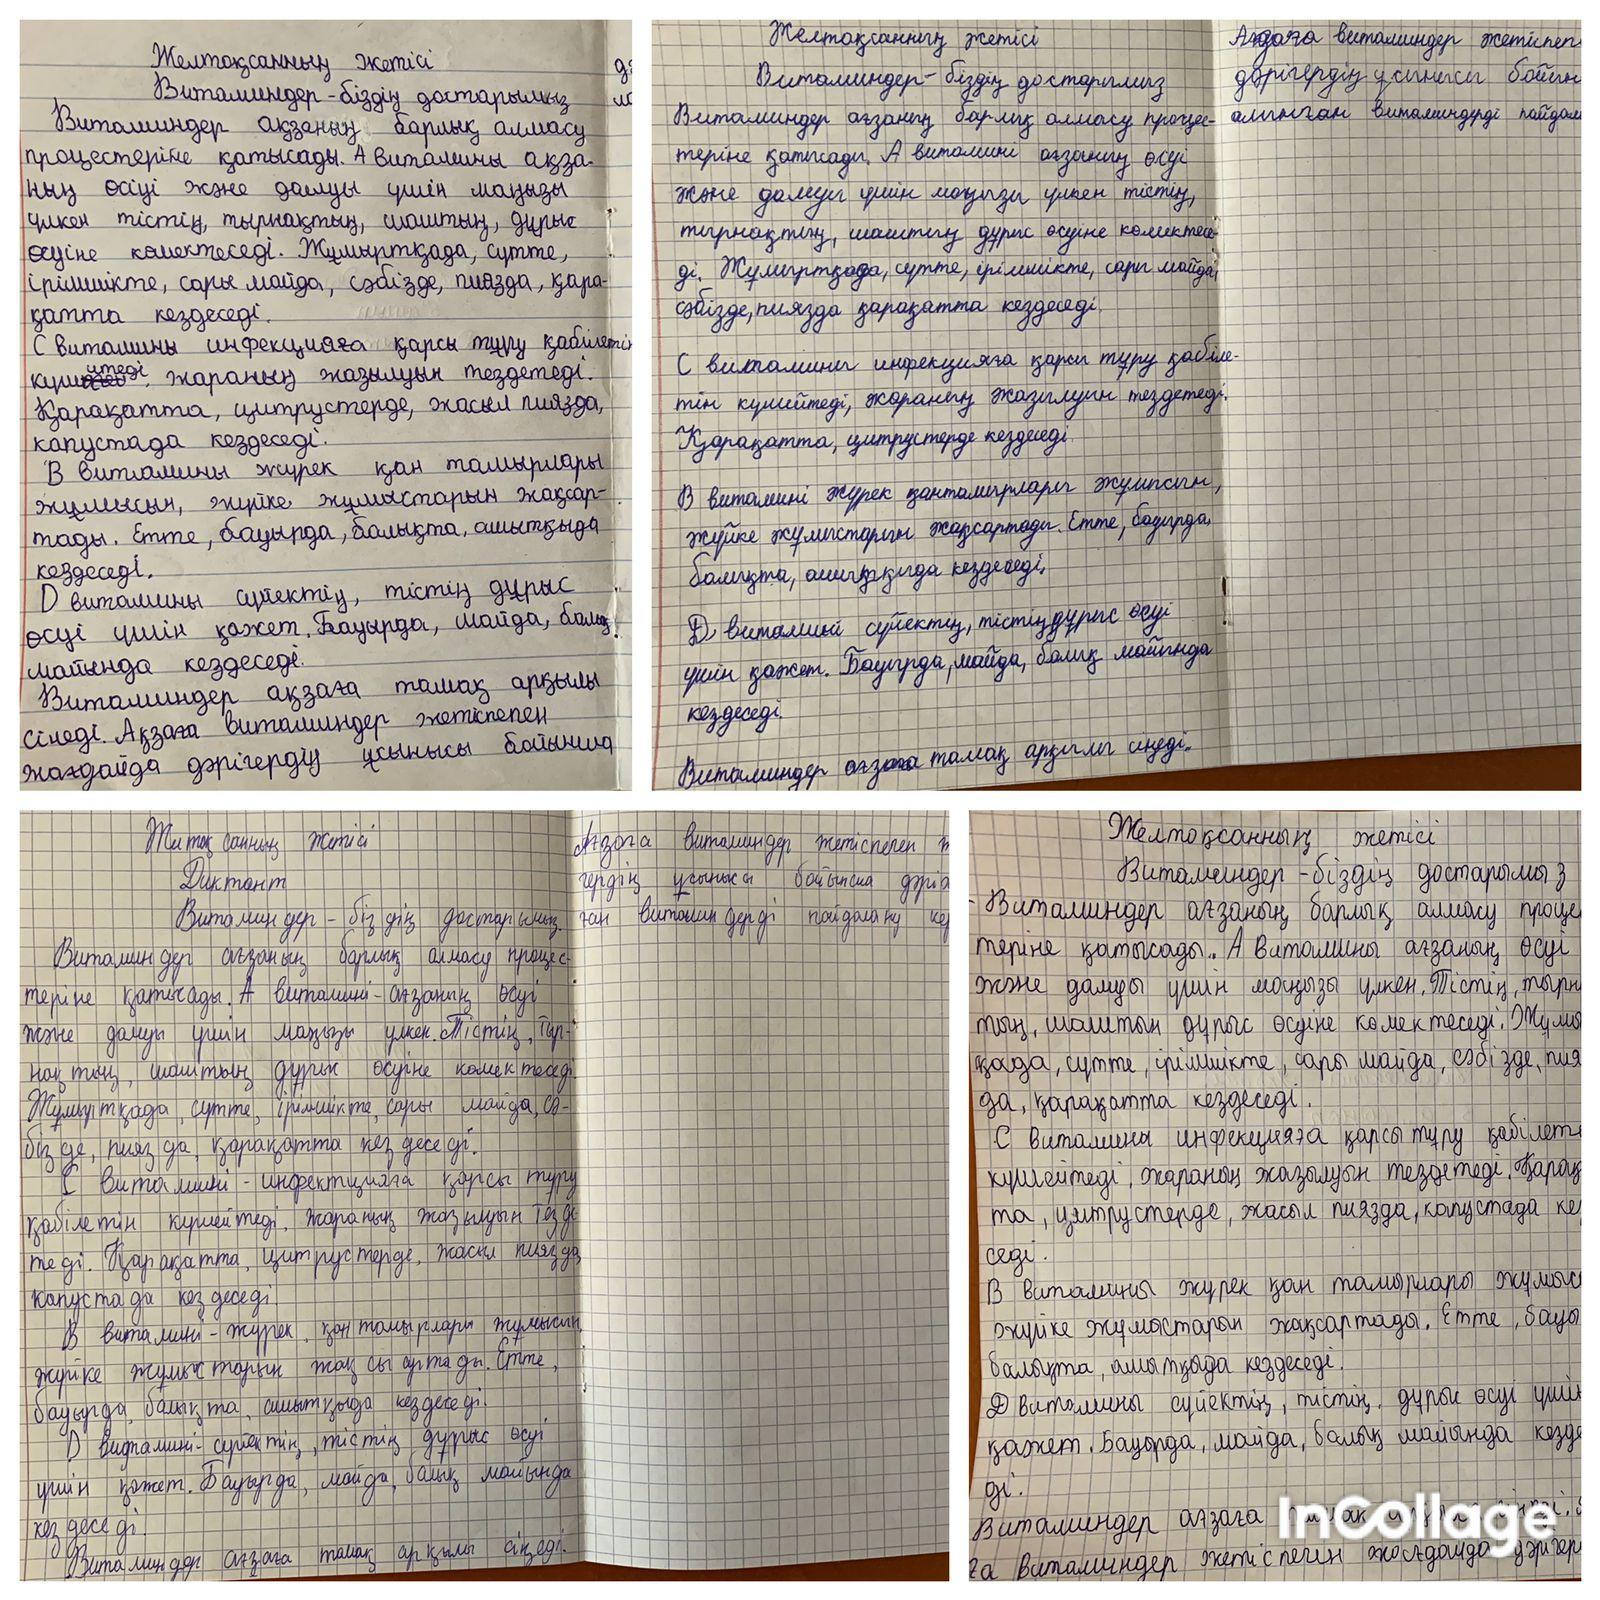 Желтоқсанның жетісі
Витаминдер - біздің достарымыз
Витаминдер ақзаның барлық алмасу
процестеріне қатысады. А витамины ақза-
ның өсіуі және дамуы үшін маңызы
үлкен тістің, тырнақтың, шаштың, дұрыс
өсуіне көмектеседі. Жұмыртқада, сүтте,
ірімшікте, сары майда, сәбізде, пиязда, қара-
қатта кездеседі.
С витамины инфекцияға қарсы тұру қабілетін
күшейтеді, жараның жазылуын тездетеді.
Қарақатта, цитрустерде, жасыл пиязда,
капустада кездеседі.
В витамины жүрек қан тамырлары
жұмысын, жүйке жұмыстарын жақсар-
тады. Етте, бауырда, балықта, ашытқыда
кездеседі.
D витамины сүйектің, тістің дұрыс
өсуі үшін қажет. Бауырда, майда, балық
майында кездеседі.
Витаминдер ақзаға тамақ арқылы
сінеді. Ақзаға витаминдер жетіспепен
жағдайда дәрігердің ұсынысы бойынша
Желтоқсанның жетісі
Витаминдер - біздің достарымыз
Витаминдер ағзаның барлық алмасу процес-
теріне қатысады. А витамині ағзаның өсуі
және дамуы үшін маңызы үлкен тістің,
тырнақтың, шаштың дұрыс өсуіне көмектесе
ді. Жұмыртқада, сүтте, ірімшікте, сары майда,
сәбізде, пиязда қарақатта кездеседі.
С витамины инфекцияға қарсы тұру қабіле-
тін күшейтеді, жараның жазылуын тездетеді.
Қарақатта, цитрустерде кездеседі.
В витамині жүрек қантамырлары жұмысын,
жүйке жұмыстарын жақсартады. Етте, бауырда,
балықта, кездеседі.
D витамины сүйектің, тістің дұрыс өсуі
үшін қажет. Бауырда, майда, балық майында
кездеседі.
Витаминдер ағзаға тамақ арқылы сіңеді.
Ағзаға витаминдер жетіспеп
дәрігердің ұсынысы бойын
алынған витаминдерді пайдал
Желтоқсанның жетісі
Диктант
Витаминдер - біздің достарымыз.
Витаминдер ағзаның барлық алмасу процес-
теріне қатысады. А витамині - ағзаның өсуі
және дамуы үшін маңызы үлкен. Тістің, тыр-
нақтың, шаштың дұрыс өсуіне көмектеседі.
Жұмыртқада, сүтте, ірімшікте, сары майда, сә-
бізде, пиязда, қарақатта кездеседі.
С витамині - инфектцияға қарсы тұру
қабілетін күшейтеді, жараның жазылуын тезде
теді. Қарақатта, цитрустерде, жасыл пиязда,
капустада кездеседі.
В витамині - жүрек, қан тамырлары жұмысын,
жүйке жұмыстарын жақсы артады. Етте,
бауырда, балықта, ашытқыда кездеседі.
D витамині - сүйектің, тістің дұрыс өсуі
үшін қажет. Бауырда, майда, балық майында
кездеседі.
Витаминдер ағзаға тамақ арқылы сіңеді.
Ағзаға витаминдер жетіспеген ж
гердің ұсынысы бойынша дәріг
ған витаминдерді пайдалану кер
Желтоқсанның жетісі
Витаминдер - біздің достарымыз
Витаминдер ағзаның барлық алмасу процес
теріне қатысады. А витамины ағзаның өсуі
және дамуы үшін маңызы үлкен. Тістің, тырн
тың, шаштын дұрыс өсуіне көмектеседі. Жұмы
қада, сүтте, ірімшікте, сары майда, сәбізде, пия
да, қарақатта кездеседі.
С витамины инфекцияға қарсы тұру қабілеті
күшейтеді, жараның жазылуын тездетеді. Қарақ
та, цитрустерде, жасыл пиязда, капустада ке
седі.
В витамины жүрек қан тамырлары жұмыс
жүйке жұмыстарын жақсартады. Етте, бауы
балықта, ашытқыда кездеседі.
D витамины сүйектің, тістің, дұрыс өсуі үшін
қажет. Бауырда, майда, балық майында кезде
ді.
Витаминдер ағзаға
ға витаминдер жетіспеген жағдайда дәрігер
InCollage